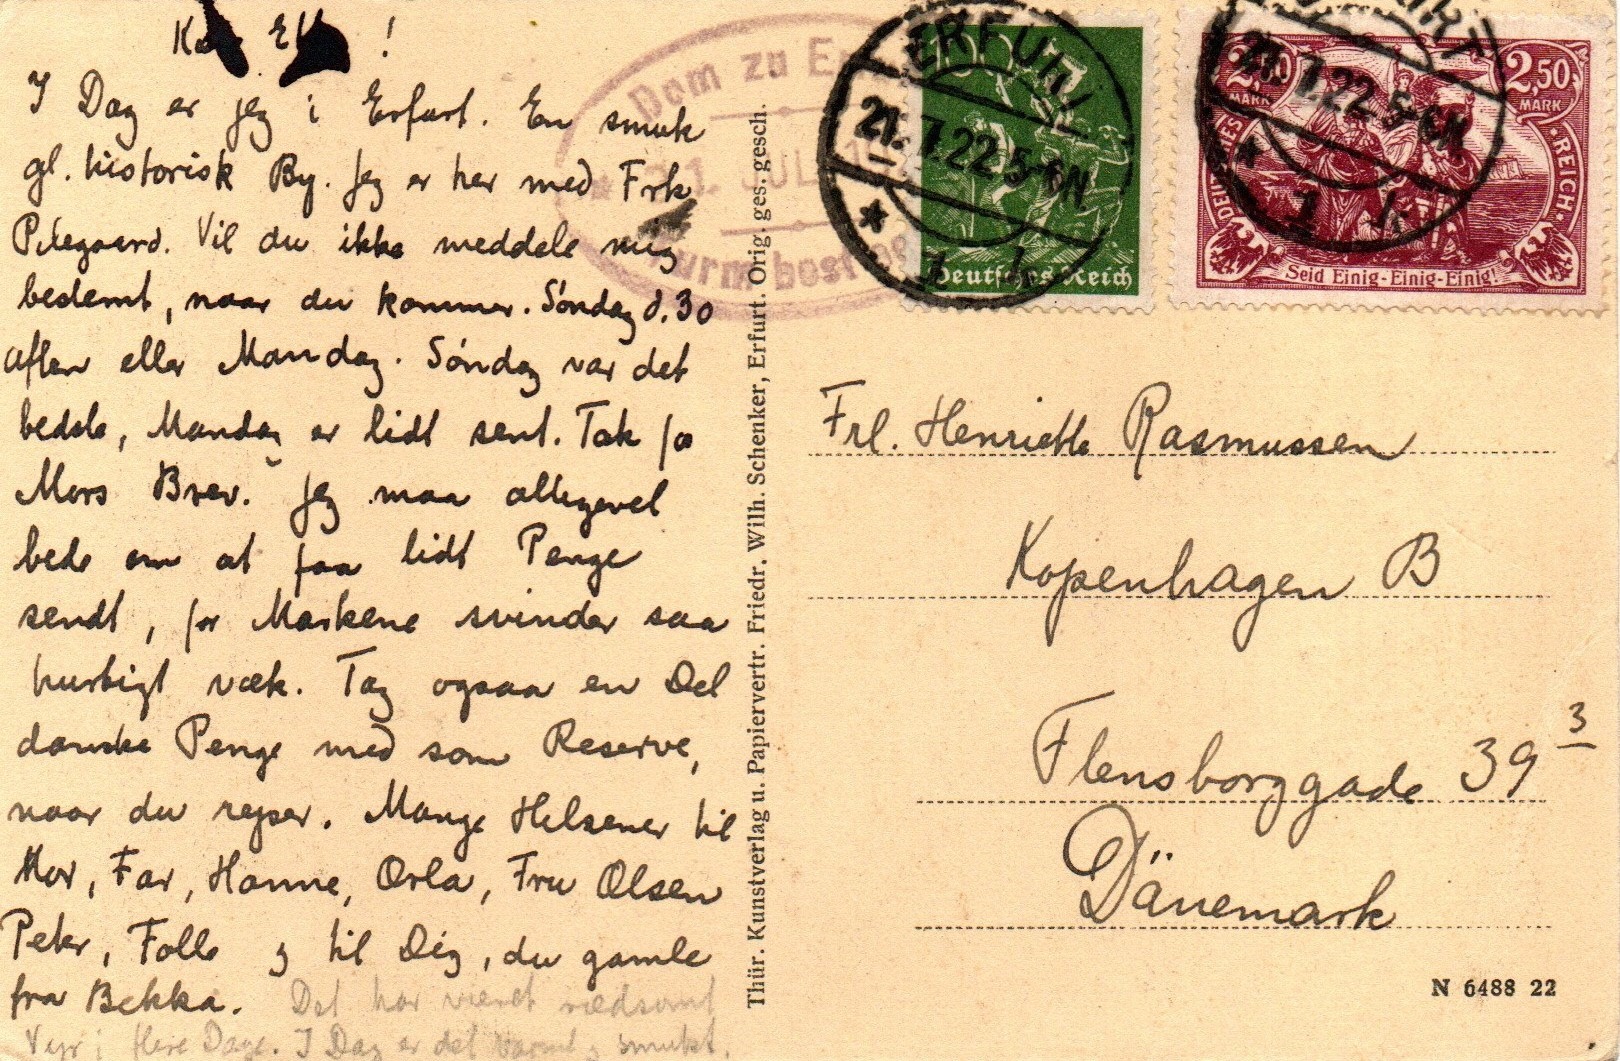 !
I Dag er jeg i Erfurt. En smuk
gl. historisk By. Jeg er her med Frk
Vil du ikke meddele mig
bestemt, naar du kommer. Søndag d. 30
aften eller Mandag. Søndag var det
bedste, Mandag er lidt sent. Tak for
Mors Brev. Jeg maa alligevel
bede om at faa lidt Penge
sendt, for Markene svinder saa
hurtigt væk. Tag ogsaa en Del
danske Penge med som Reserve,
naar du rejser. Mange Hilsener til
Mor, Far, Hanne, Orla, Fru Olsen
Peter, Folle og til Dig, du gamle
fra Bekka. Det har været rædsomt
Vejr i flere Dage. I Dag er det varmt og smukt.
Dom zu
JUL
Thür. Kunstverlag u. Papiervertr. Friedr. Wilh. Schenker, Erfurt. Orig. ges. gesch.
ERFURT
21.7.22 5-6N.
* 1 k
Deutsches Reich
ERFURT
21.7.22 5-6N.
* 1 k
2,50 MARK
2,50 MARK
DEUTSCHES REICH
Seid Einig-Einig-Einig!
Frl. Henriette Rasmussen
Kopenhagen B
Flensborggade 39 3
Dänemark
N 6488 22